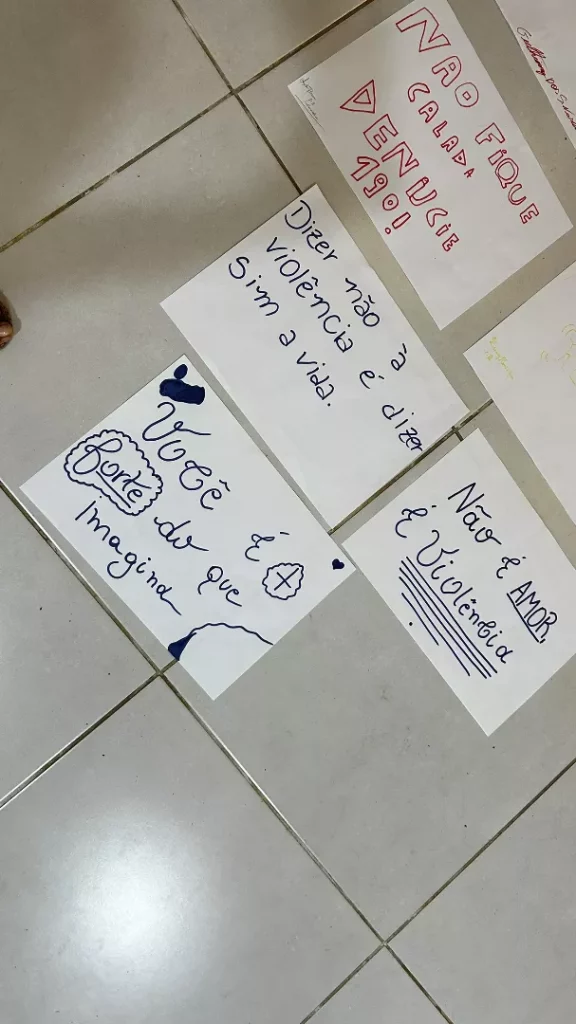 NAO FIQUE
CALADA
DENUCIE
190!
Dizer não à
violência é dizer
sim a vida.
Você é +
forte do que
imagina
Não é AMOR,
é Violência